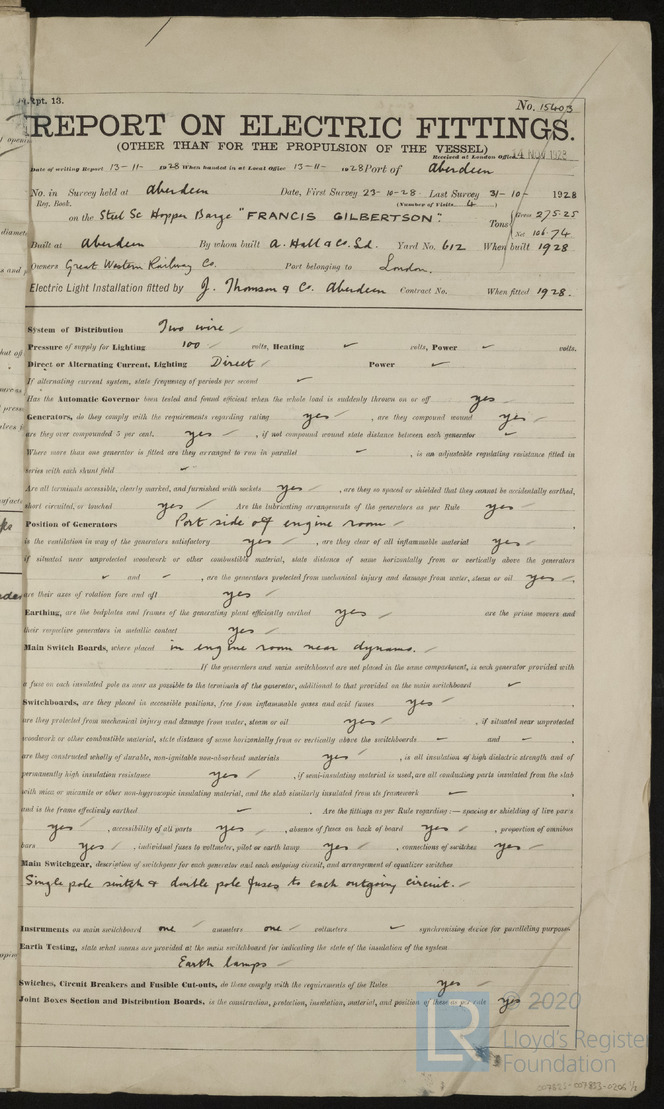 Rpt. 13.
No. 15403
REPORT ON ELECTRIC FITTINGS.
(OTHER THAN FOR THE PROPULSION OF THE VESSEL)
Received at London Office 14 NOV 1928
Date of writing Report 13-11- 1928 When handed in at Local Office 13-11- 1928 Port of Aberdeen
No. in Survey held at Aberdeen Date, First Survey 23-10-28 Last Survey 31-10- 1928
Reg. Book. (Number of Visits 4)
on the Steel Sc Hopper Barge "FRANCIS GILBERTSON". Tons { Gross 275.25
Net 106.74
Built at Aberdeen By whom built A. Hall & Co. Ld. Yard No. 612 When built 1928
Owners Great Western Railway Co. Port belonging to London.
Electric Light Installation fitted by J. Thomson & Co. Aberdeen Contract No. When fitted 1928.
System of Distribution Two wire
Pressure of supply for Lighting 100 volts, Heating ✓ volts, Power ✓ volts.
Direct or Alternating Current, Lighting Direct Power ✓
If alternating current system, state frequency of periods per second ✓
Has the Automatic Governor been tested and found efficient when the whole load is suddenly thrown on or off yes
Generators, do they comply with the requirements regarding rating yes, are they compound wound yes
are they over compounded 5 per cent. yes, if not compound wound state distance between each generator ✓
Where more than one generator is fitted are they arranged to run in parallel ✓, is an adjustable regulating resistance fitted in
series with each shunt field ✓
Are all terminals accessible, clearly marked, and furnished with sockets yes, are they so spaced or shielded that they cannot be accidentally earthed,
short circuited, or touched yes Are the lubricating arrangements of the generators as per Rule yes
Position of Generators Port side of engine room
is the ventilation in way of the generators satisfactory yes, are they clear of all inflammable material yes
if situated near unprotected woodwork or other combustible material, state distance of same horizontally from or vertically above the generators
✓ and ✓, are the generators protected from mechanical injury and damage from water, steam or oil yes,
are their axes of rotation fore and aft yes
Earthing, are the bedplates and frames of the generating plant efficiently earthed yes are the prime movers and
their respective generators in metallic contact yes
Main Switch Boards, where placed in engine room near dynamo.
If the generators and main switchboard are not placed in the same compartment, is each generator provided with
a fuse on each insulated pole as near as possible to the terminals of the generator, additional to that provided on the main switchboard ✓
Switchboards, are they placed in accessible positions, free from inflammable gases and acid fumes yes,
are they protected from mechanical injury and damage from water, steam or oil yes, if situated near unprotected
woodwork or other combustible material, state distance of same horizontally from or vertically above the switchboards ✓ and ✓,
are they constructed wholly of durable, non-ignitable non-absorbent materials yes, is all insulation of high dielectric strength and of
permanently high insulation resistance yes, if semi-insulating material is used, are all conducting parts insulated from the slab
with mica or micanite or other non-hygroscopic insulating material, and the slab similarly insulated from its framework ✓,
and is the frame effectively earthed ✓. Are the fittings as per Rule regarding:— spacing or shielding of live parts
yes, accessibility of all parts yes, absence of fuses on back of board yes, proportion of omnibus
bars yes, individual fuses to voltmeter, pilot or earth lamp yes, connections of switches yes
Main Switchgear, description of switchgear for each generator and each outgoing circuit, and arrangement of equalizer switches
Single pole switch & double pole fuses to each outgoing circuit.
Instruments on main switchboard one ammeters one voltmeters ✓ synchronising device for paralleling purposes
Earth Testing, state what means are provided at the main switchboard for indicating the state of the insulation of the system
Earth lamps
Switches, Circuit Breakers and Fusible Cut-outs, do these comply with the requirements of the Rules yes
Joint Boxes Section and Distribution Boards, is the construction, protection, insulation, material, and position of these as per rule yes
© 2020
Lloyd's Register
Foundation